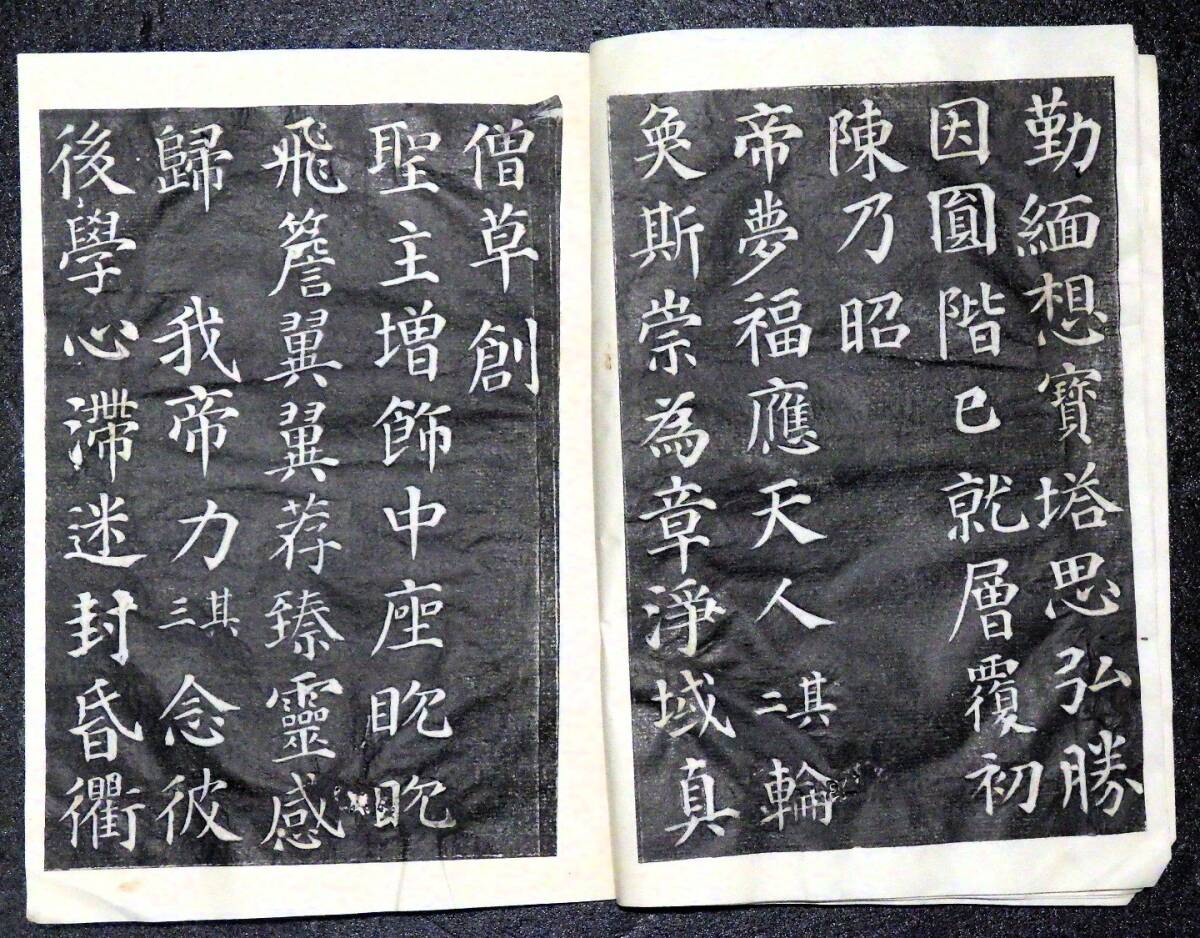 勤緬想寶塔思弘勝
因圓階已就層覆初
陳乃昭
帝夢福應天人其二輪
奐斯崇為章淨域真
僧草創
聖主增飾中座眈眈
飛簷翼翼荐臻靈感
歸我帝力其三念彼
後學心滯迷封昏衢